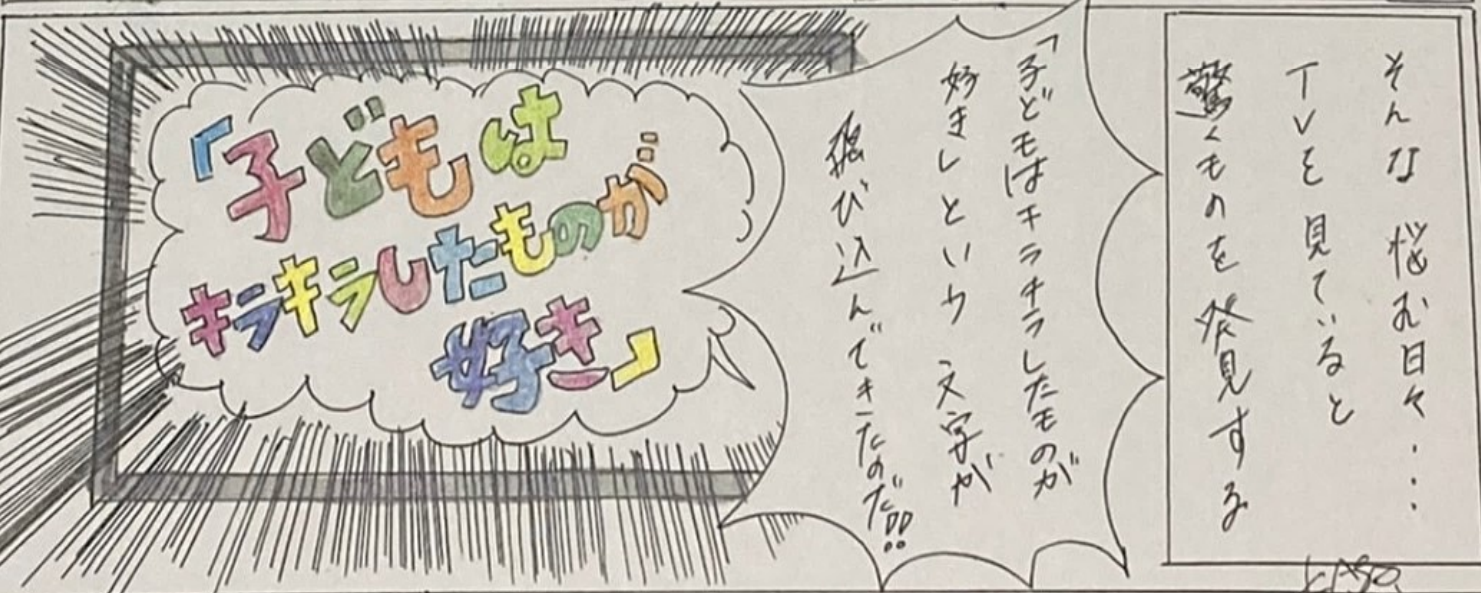 そんな悩む日々・・・・
TVを見ていると
驚くものを発見する
「子どもはキラキラしたものが
好き」という文字が
飛び込んできたのだ!!
「子どもは
キラキラしたものが
好き」